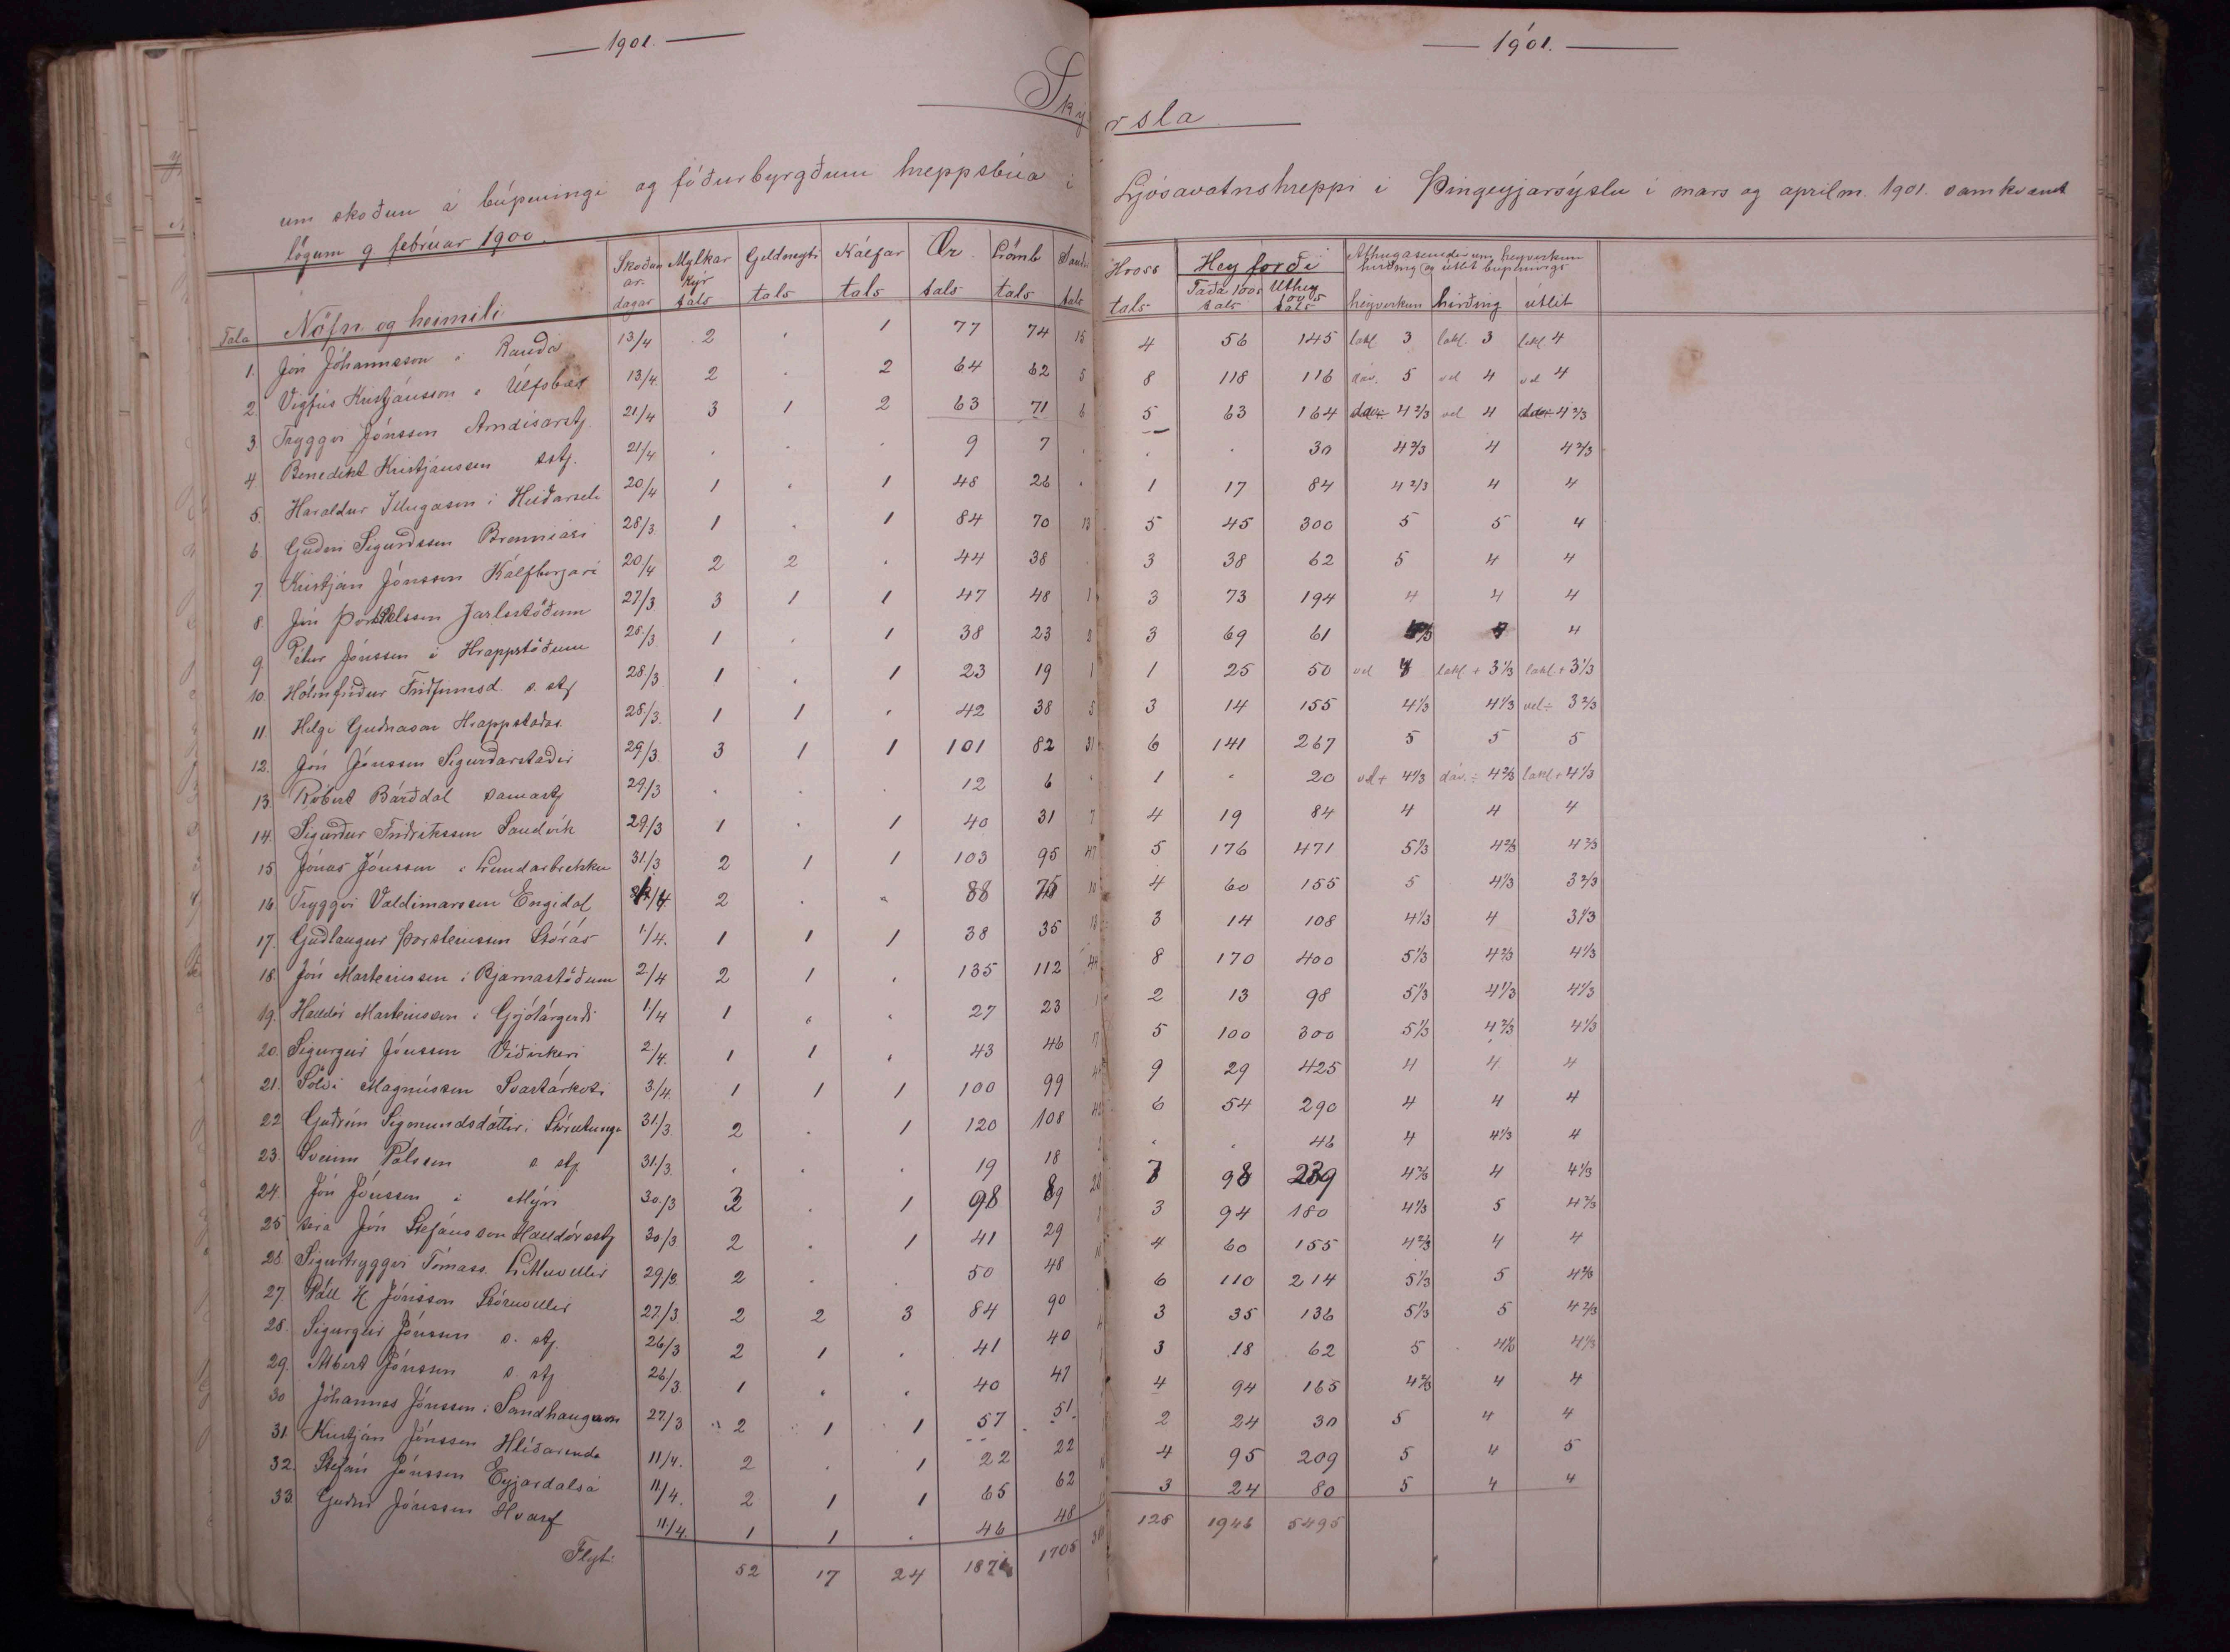 1901.
1901.
Skýrsla
um skoðun á búpeningi og fóðurbyrgðum hreppsbúa í Ljósavatnshreppi í Þingeyjarsýslu í mars og aprílm. 1901. samkvæmt
lögum 9 febrúar 1900.
Tala Nöfn og heimili Skoðunar-dagar Mylkar kýr tals Geldneyti tals Kálfar tals Ær tals Lömb tals Sauðir tals Hross tals Hey forði Taða 100s tals Úthey 100s tals Athugasemdir um heyverkun hirðing og útlit búpenings heyverkun hirðing útlit
1. Jón Jóhannsson á Rauðá 13/4 2 . 1 77 74 15 4 56 145 lakl. 3 lakl. 3 lakl 4
2. Vigfús Kristjánsson á Úlfsbæ 13/4. 2 . 2 64 62 5 8 118 116 dáv. 5 vel 4 vel 4
3 Tryggvi Jónsson Arndísarstj. 21/4 3 1 2 63 71 6 5 63 164 4 2/3 vel 4 4 2/3
4. Benedikt Kristjánsson sstj. 21/4 . . . 9 7 . . . 30 4 2/3 4 4 2/3
5. Haraldur Illugason í Heiðarseli 20/4 1 . 1 48 26 . 1 17 84 4 2/3 4 4
6. Guðni Sigurðsson Brenniási 28/3 1 . 1 84 70 13 5 45 300 5 5 4
7. Kristján Jónsson Kálfborgará 20/4 2 2 . 44 38 . 3 38 62 5 4 4
8. Jón Þorkelsson Jarlsstöðum 27/3 3 1 1 47 48 1 3 73 194 4 4 4
9. Pétur Jónsson á Hrappstöðum 28/3. 1 . 1 38 23 2 3 69 61 4
10. Hólmfríður Friðfinnsd. s. stj 28/3 1 . 1 23 19 1 1 25 50 vel 4 lakl. + 3 1/3 lakl. + 3 1/3
11. Helgi Guðnason Hrappstaðas. 28/3. 1 1 . 42 38 5 3 14 155 4 1/3 4 1/3 vel ÷ 3 2/3
12. Jón Jónsson Sigurðarstaðir 29/3 3 1 1 101 82 31 6 141 267 5 5 5
13. Róbert Bárðdal samastj 29/3 . . . 12 6 . 1 . 20 vel + 4 1/3 dáv. ÷ 4 2/3 lakl + 4 1/3
14. Sigurður Friðriksson Sandvík 29/3 1 . 1 40 31 7 4 19 84 4 4 4
15 Jónas Jónsson á Lundarbrekku 31./3 2 1 1 103 95 47 5 176 471 5 1/3 4 2/3 4 2/3
16 Tryggvi Valdimarsson Engidal 2 . . 88 75 10 4 60 155 5 4 1/3 3 2/3
17. Guðlaugur Þorsteinsson Stórás 1./4. 1 1 1 38 35 13 3 14 108 4 1/3 4 3 1/3
18. Jón Marteinsson á Bjarnastöðum 2./4 2 1 . 135 112 44 8 170 400 5 1/3 4 2/3 4 1/3
19. Halldór Marteinsson í Grjótárgerði 1/4 1 . . 27 23 1 2 13 98 5 1/3 4 1/3 4 1/3
20. Sigurgeir Jónsson Víðirkeri 2./4. 1 1 . 43 46 17 5 100 300 5 1/3 4 2/3 4 1/3
21. Sölvi Magnússon Svartárkoti 3./4. 1 1 1 100 99 9 29 425 4 4 4
22 Guðrún Sigmundsdóttir í Stórutungu 31./3 2 . 1 120 108 6 54 290 4 4 4
23. Sveinn Pálsson s. stj. 31./3. . . . 19 18 2 . . 46 4 4 1/3 4
24. Jón Jónsson á Mýri 30./3 3 . 1 98 89 7 98 239 4 2/3 4 4 1/3
25 séra Jón Stefánsson Halldórsstj 30/3 2 . 1 41 29 3 94 180 4 1/3 5 4 2/3
26. Sigurtryggvi Tómass. Litluvellir 29/3. 2 . . 50 48 4 60 155 4 2/3 4 4
27. Páll H. Jónsson Stóruvellir 27/3. 2 2 3 84 90 6 110 214 5 1/3 5 4 2/3
28. Sigurgeir Jónsson s. stj. 26/3 2 1 . 41 40 3 35 136 5 1/3 5 4 2/3
29. Albert Jónsson s. stj 26/3. 1 . . 40 47 3 18 62 5 4 1/3 4 1/3
30 Jóhannes Jónsson í Sandhaugum 27/3 2 1 1 57 51 4 94 165 4 2/3 4 4
31. Kristján Jónsson Hlíðarenda 11/4. 2 . 1 22 22 2 24 30 5 4 4
32. Stefán Jónsson Eyjardalsá 11/4. 2 1 1 65 62 4 95 209 5 4 5
33. Guðni Jónsson Hvarf 11./4. 1 1 . 46 48 3 24 80 5 4 4
Flyt: 52 17 24 1871 1705 128 1946 5495